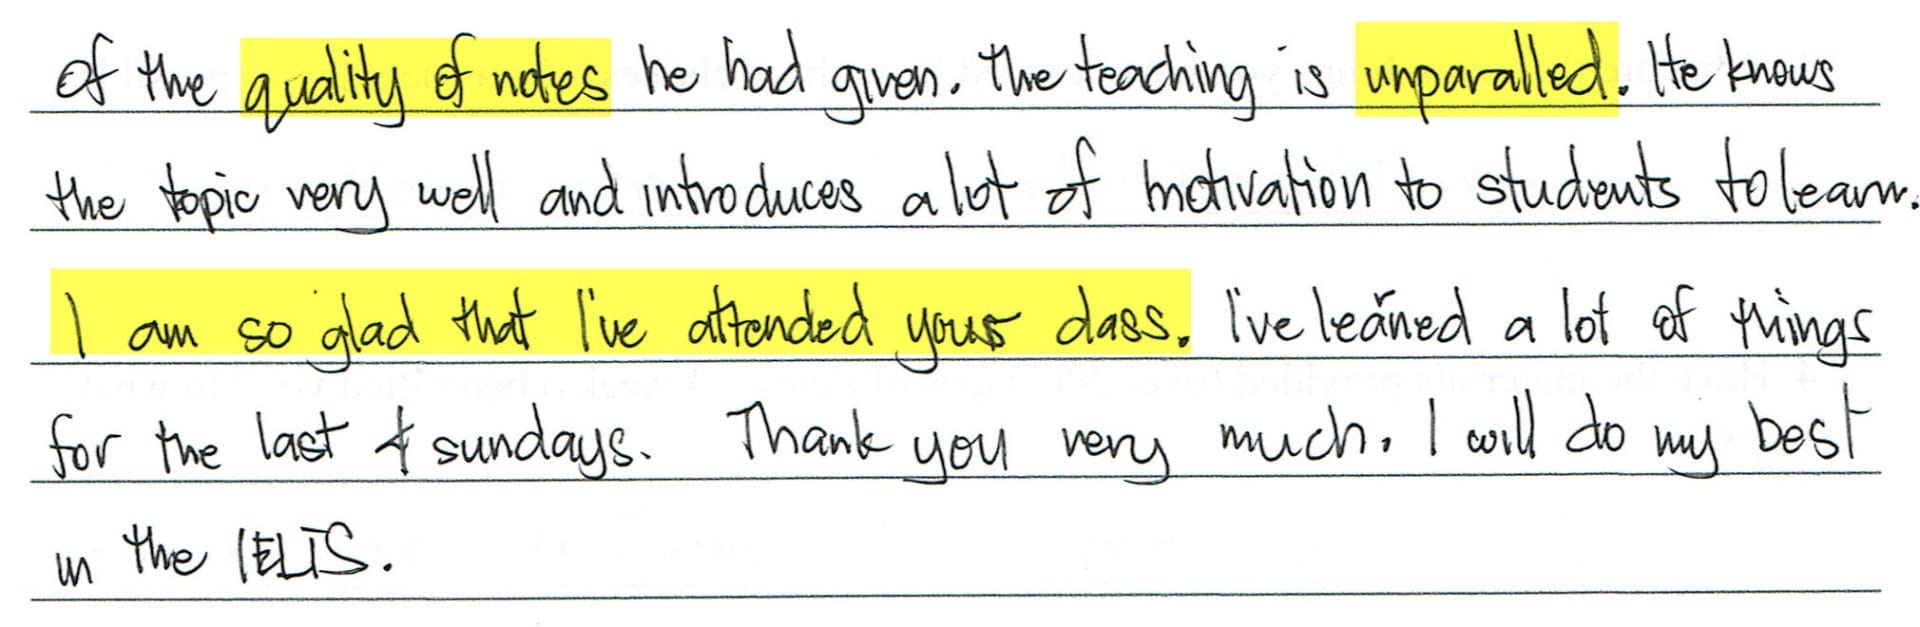 of the quality of notes he had given. The teaching is unparalled. He knows
the topic very well and introduces a lot of motivation to students to learn.
I am so glad that I've attended your class. I've learned a lot of things
for the last 4 sundays. Thank you very much. I will do my best
in the IELTS.